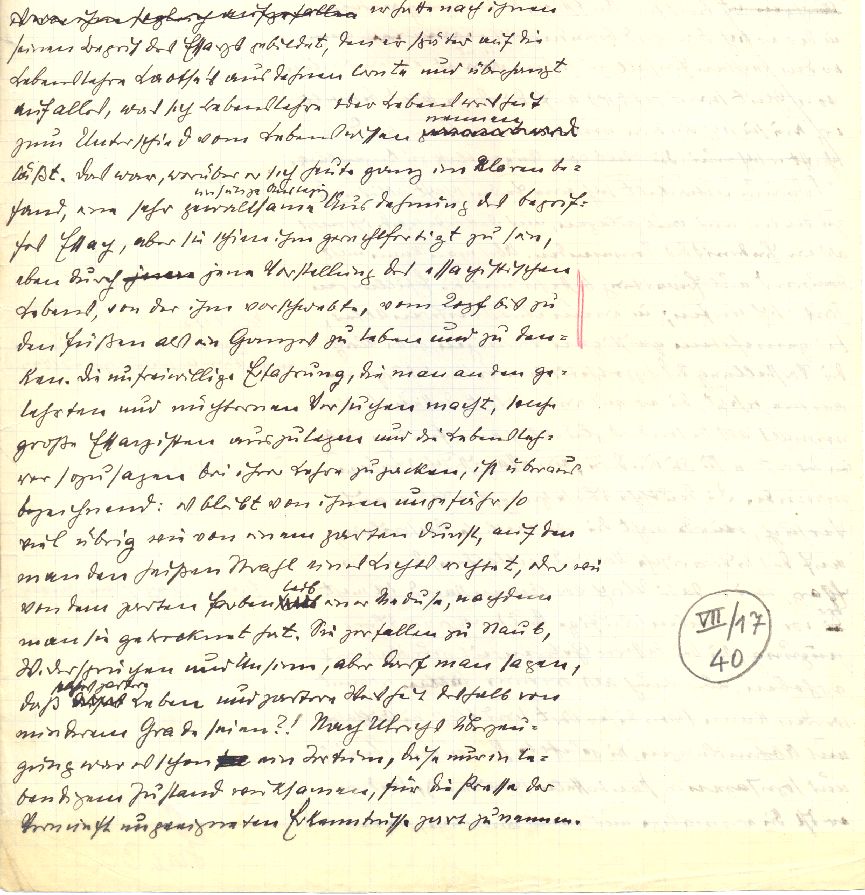 er hatte nach ihnen
seinen Begriff des Essays gebildet, den er später auf die
Lebenslehre Laotse's ausdehnen konnte und überhaupt
auf alles, was sich Lebenslehre oder Lebensweisheit
nennen
zum Unterschied vom Lebenswissen
läßt. Das war, worüber er sich heute ganz im Klaren be=
fand, eine sehr gewaltsame Ausdehnung des Begrif=
fes Essay, aber sie schien ihm gerechtfertigt zu sein,
eben durch jene Vorstellung des essayistischen
Lebens, von der ihm vorschwebte, vom Kopf bis zu
den Füßen als ein Ganzes zu leben und zu den=
ken. Die unfreiwillige Erfahrung, die man an den ge=
lehrten und nüchternen Versuchen macht, solche
große Essayisten auszulegen und die Lebensleh=
rer sozusagen bei ihrer Lehre zu packen, ist überaus
bezeichnend: es bleibt von ihnen ungefähr so
viel übrig wie von einem zarten Dunst, auf den
man den heißen Strahl eines Lichts richtet, oder wie
leib
von dem zarten Farben einer Meduse, nachdem
man sie getrocknet hat. Sie zerfallen zu Staub,
Widersprüchen und Unsinn, aber darf man sagen,
daß Leben und zartere Weisheit deshalb von
minderem Grade seien?! Nach Ulrichs Überzeu=
gung war es schon ein Irrtum, diese nur in le=
bendigem Zustand wirksamen, für die Presse der
Vernunft ungeeigneten Erkenntnisse zart zu nennen.
VII/17
40